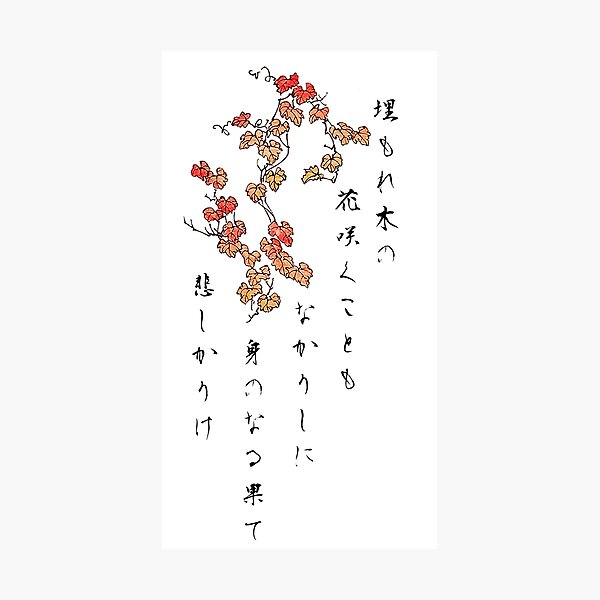 埋もれ木の
花咲くことも
なかりしに
身のなる果て
悲しかりけ